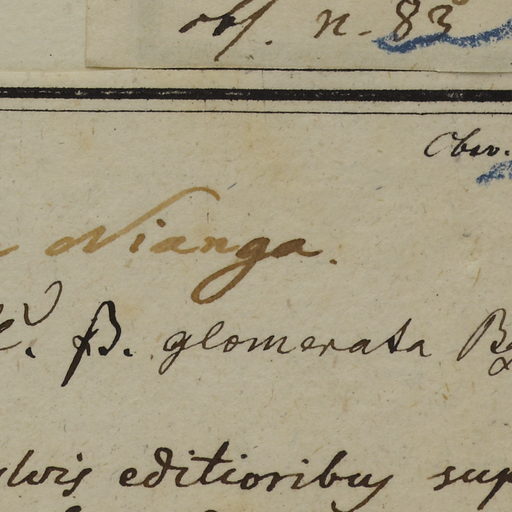 obs. n. 83
Obser.
Nianga.
β. glomerata
editioribus sup